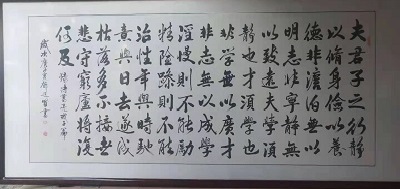 夫君子之行靜
以脩身儉以養
德非澹泊無以
明志非寧靜無
以致遠夫學須
靜也才須學也
非學無以廣才
非志無以成學
淫慢則不能勵
精險躁則不能
治性年與時馳
意與日去遂成
枯落多不接世
悲守窮廬將復
何及
諸葛亮誡子篇
歲次
書